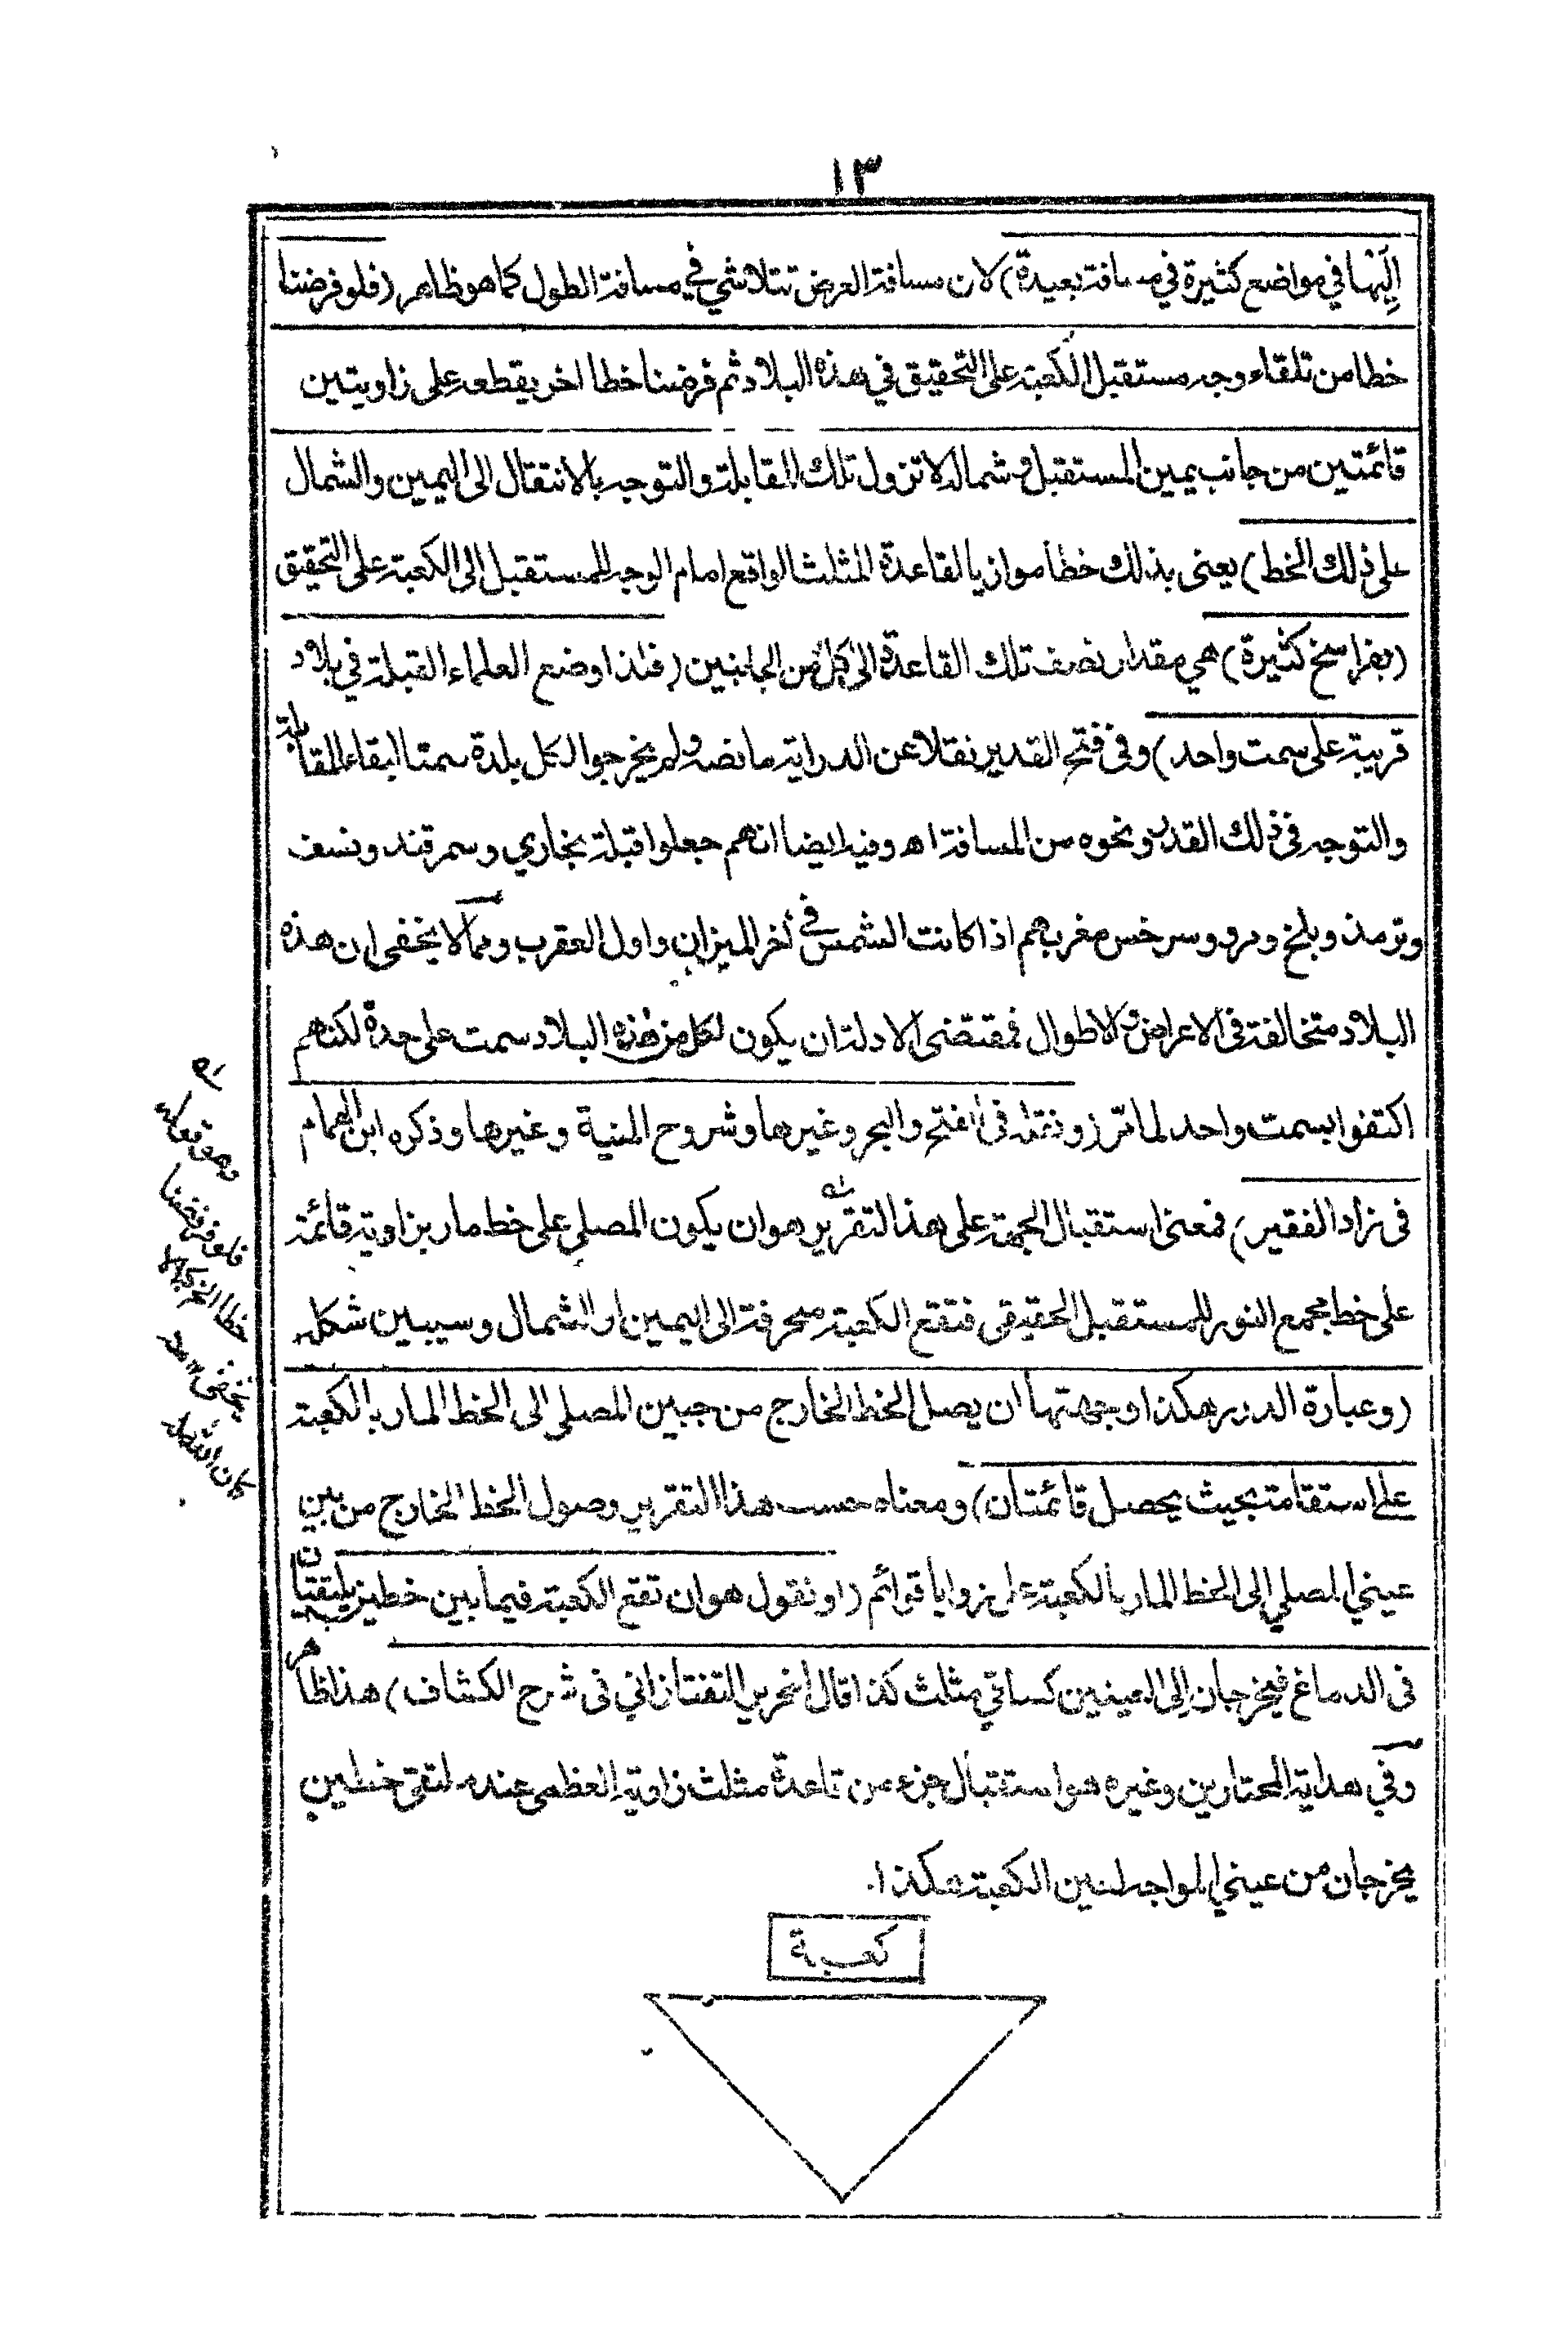 ١٣
إليها في مواضع كثيرة في مسافة بعيدة) لان مسافة العرض تتلاشي في مسافة الطول كما هو ظاهر (فلو فرضنا
خطا من تلقاء وجه مستقبل الكعبة على التحقيق في هذه البلاد ثم فرضنا خطا اخر يقطعه على زاويتين
قائمتين من جانب يمين المستقبل و شماله لا تزول تلك المقابلة والتوجه بالانتقال الى اليمين والشمال
على ذلك الخط) يعنى بذلك خطا موازيا لقاعدة المثلث الواقع امام الوجه للمستقبل الى الكعبة على التحقيق
(بفراسخ كثيرة) هي مقدار نصف تلك القاعدة الى كل من الجانبين (فلذا وضع العلماء القبلة في بلاد
قريبة على سمت واحد) وفي فتح القدير نقلا عن الدراية ما نصه ولم يخرجوا لكل بلدة سمتا لبقاء المقابلة
والتوجه في ذلك القدر ونحوه من المسافة اه وفيه ايضا انهم جعلوا قبلة بخاري وسمرقند ونسف
وترمذ وبلخ ومرو وسرخس مغربهم اذا كانت الشمس في أخر الميزان واول العقرب ومما لا يخفى ان هذه
البلاد متخالفة في الاعراض والاطوال فمقتضى الادلة ان يكون لكل من هذه البلاد سمت على حدة لكنهم
اكتفوا بسمت واحد لما مر (ونقله في الفتح والبحر وغيرها وشروح المنية وغيرها وذكره ابن الهمام
في زاد الفقير) فمعنى استقبال الجهة على هذا التقرير هو ان يكون المصلي على خط مار بزاوية قائمة
على خط مجمع النور للمستقبل الحقيقي فتقع الكعبة منحرفة الى اليمين او الشمال وسيبين شكله
(وعبارة الدرر هكذا وجهتها ان يصل الخط الخارج من جبين المصلي الى الخط المار بالكعبة
على استقامة بحيث يحصل قائمتان) ومعناه حسب هذا التقرير وصول الخط الخارج من بين
عيني المصلي الى الخط المار بالكعبة على زوايا قوائم (او نقول هو ان تقع الكعبة فيما بين خطين يلتقيان
في الدماغ فيخرجان إلى العينين كساقي مثلث كذا قال النحرير التفتازاني في شرح الكشاف) هذا ظاهر
وفي هداية المحتارين وغيره هو استقبال جزء من قاعدة مثلث زاوية العظمى عند ملتقى خطين
يخرجان من عيني المواجه لعين الكعبة هكذا.
كعبة
وهو قوله
فلو فرضنا
خطا